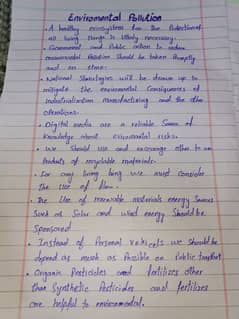 Enviromental Pollution
• A healthy ecosystem for the Protection of
all living things is utterly necessary.
• Government and Public action to reduce
environmental Pollution Should be taken Promptly
and on time.
• National Strategies will be drawn up to
mitigate the enviromental Consequences of
industrialisation manufacturing and the other
operations.
• Digital media are a reliable Source of
Knowledge about enviromental risks.
• We Should use and encourage other to use
Products of recyclable materials.
• For any living being we must Consider
the Use of
• The Use of renewable materials energy Sources
Such as Solar and wind energy Should be
Sponsored
• Instead of Personal vehicels we Should be
depend as much as Possible on Public transport
• Organic Pesticides and fertilizes other
than Synthetic Pesticides and fertilizes
are helpful to environmental.